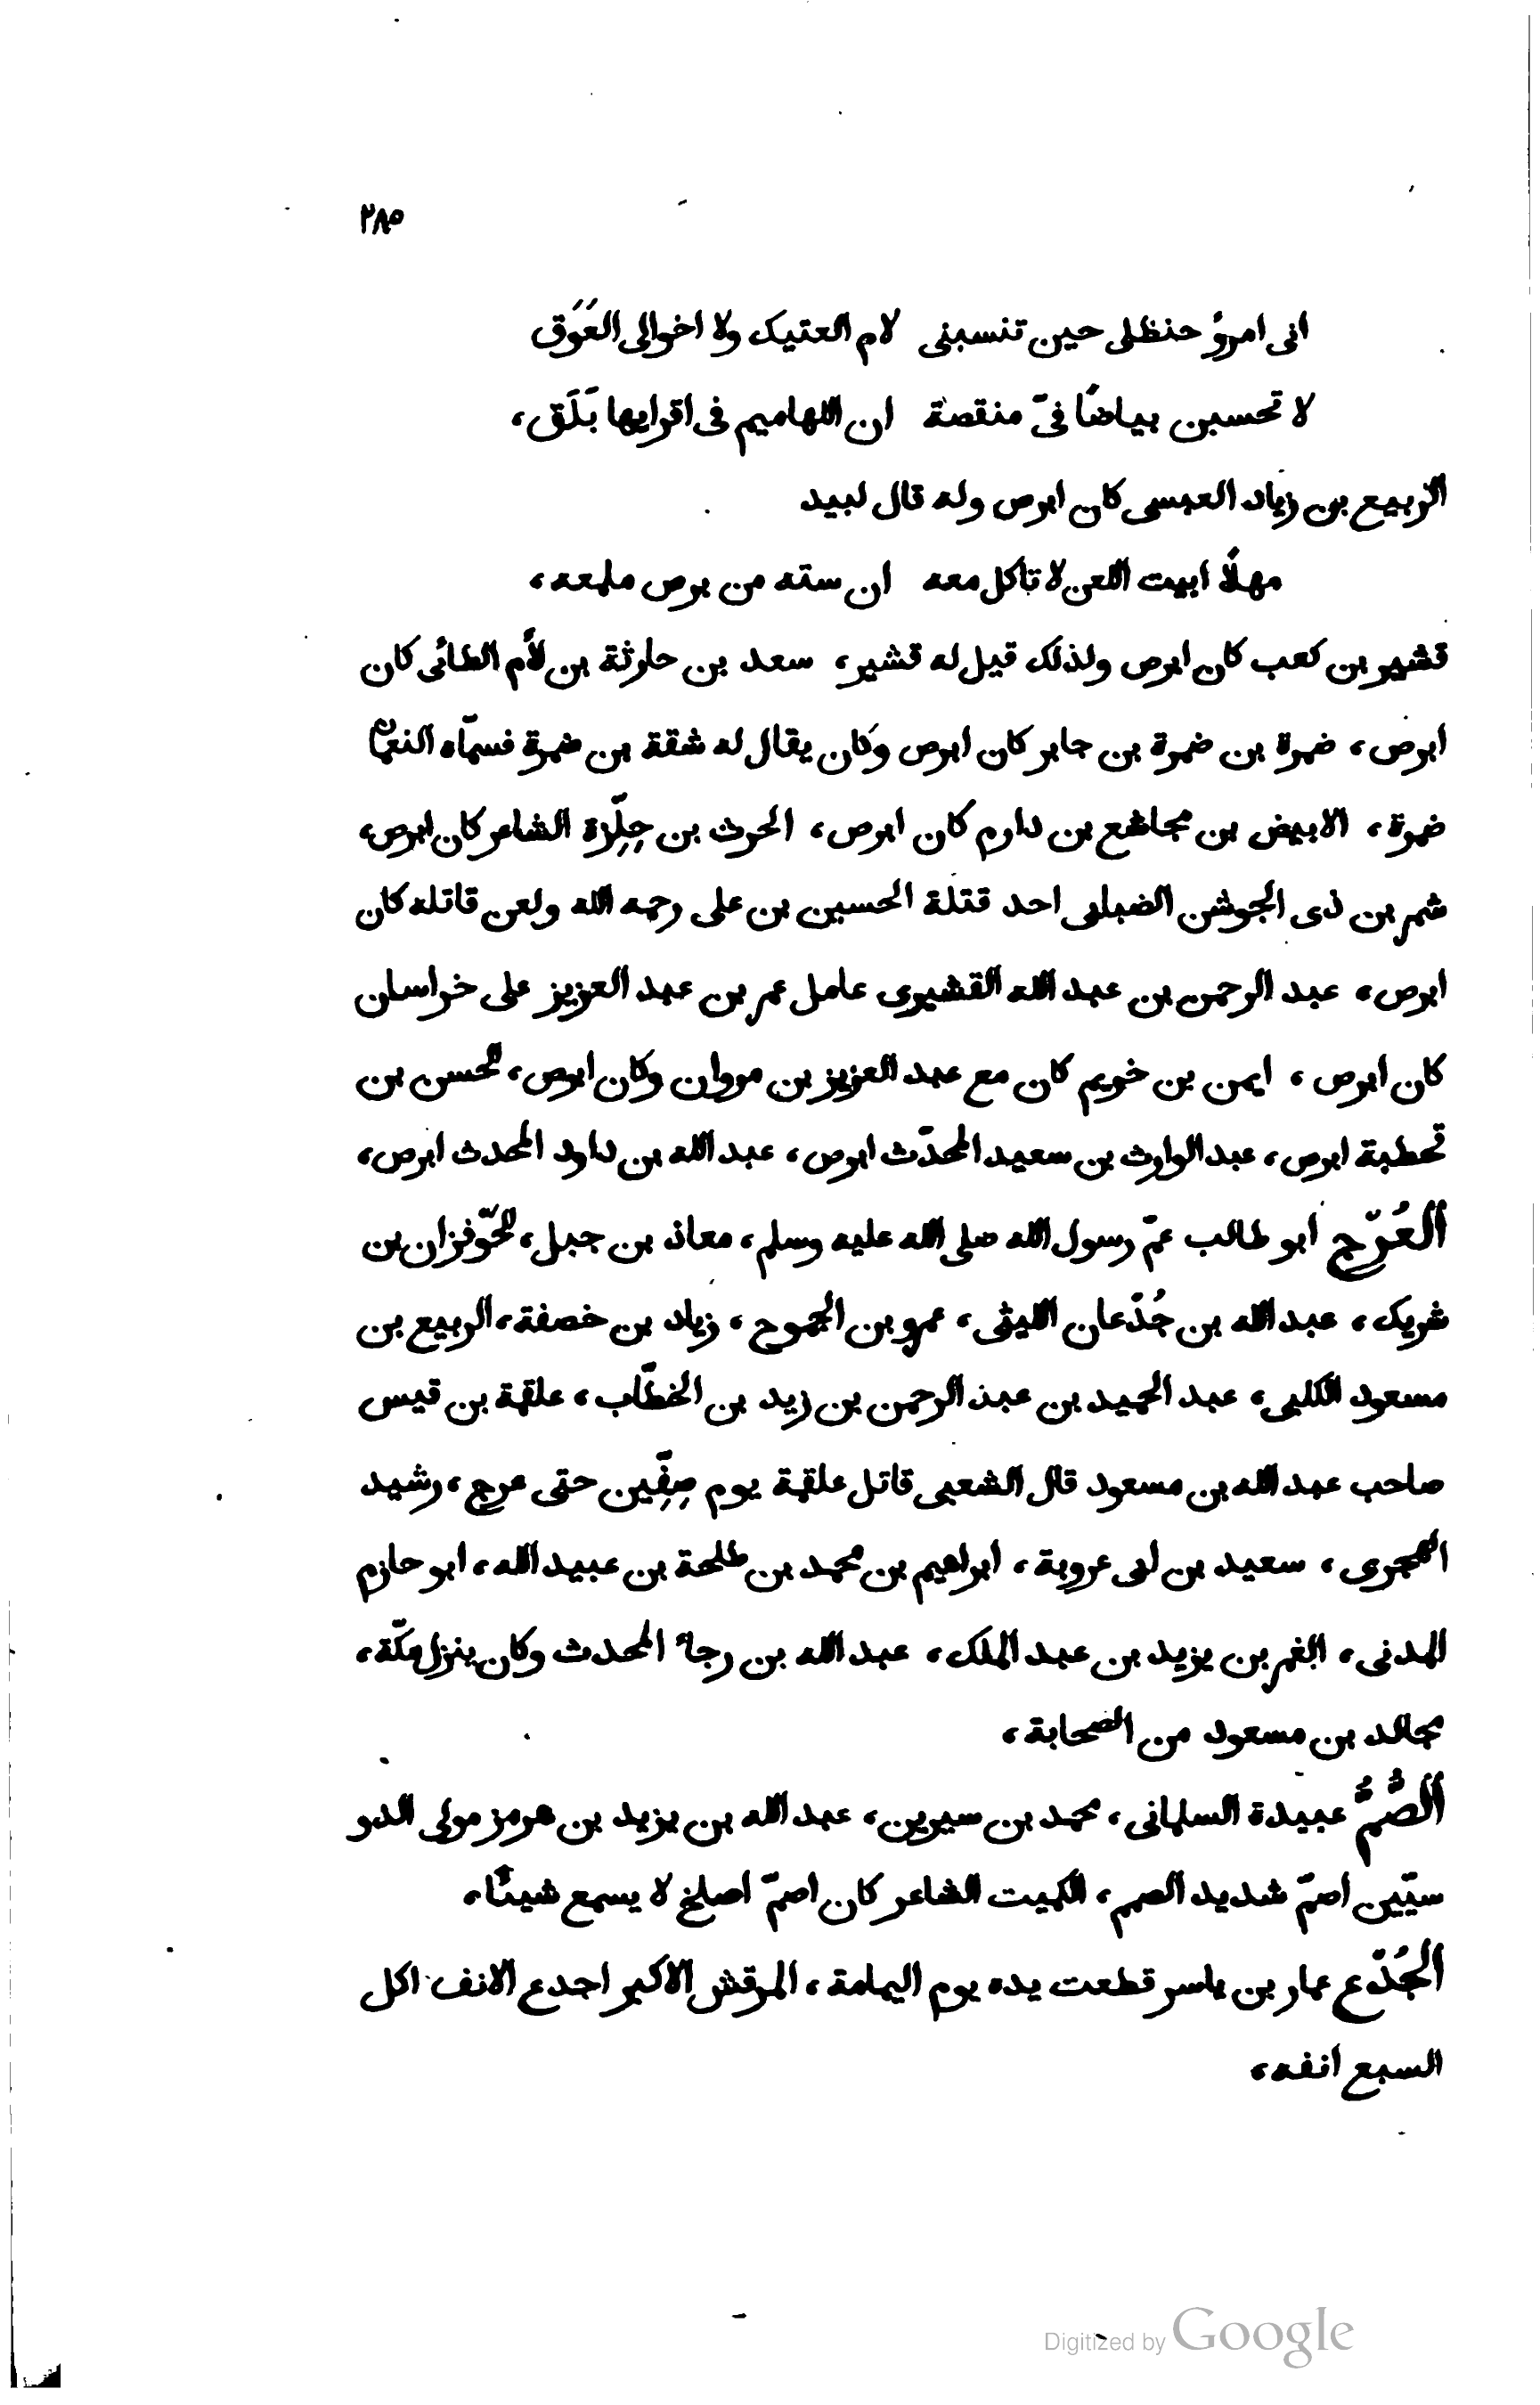 ٢٨٥
انى امرؤ حنظلى حين تنسبنى لام العتيك ولا اخوالى العَوَق
لا تحسبن بياضًا فىّ منقصة ان اللهاميم فى اقرابها بَلَق،
الربيع بن زياد العبسى كان ابرص وله قال لبيد
مهلًا ابيت اللعن لا تاكل معه ان سته من برص ملمعه،
قشير بن كعب كان ابرص ولذلك قيل له قشير، سعد بن حارثة بن لأم الطائى كان
ابرص، ضمرة بن ضمرة بن جابر كان ابرص وكان يقال له شقة بن ضمرة فسمّاه النعمان
ضمرة، الابيض بن مجاشع بن دارم كان ابرص، الحرث بن حِلِّزة الشاعر كان ابرص،
شمر بن ذى الجوشن الضبابى احد قتلة الحسين بن على رحمه الله ولعن قاتله كان
ابرص، عبد الرحمن بن عبد الله القشيرى عامل عمر بن عبد العزيز على خراسان
كان ابرص، ايمن بن خريم كان مع عبد العزيز بن مروان وكان ابرص، الحسن بن
قحطبة ابرص، عبد الوارث بن سعيد المحدّث ابرص، عبد الله بن داود المحدث ابرص،
العُرّج ابو طالب عمّ رسول الله صلى الله عليه وسلم، معاذ بن جبل، الحَوْفزان بن
شريك، عبد الله بن جُدْعان الليثى، عمرو بن الجموح، زياد بن خصفة، الربيع بن
مسعود الكلبى، عبد الحميد بن عبد الرحمن بن زيد بن الخطّاب، علقمة بن قيس
صاحب عبد الله بن مسعود قال الشعبى قاتل علقمة يوم صِفِّين حتى عرج، رشيد
الهجرى، سعيد بن ابى عروبة، ابراهيم بن محمد بن طلحة بن عبيد الله، ابو حازم
المدنى، الغمر بن يزيد بن عبد الملك، عبد الله بن رجاء المحدث وكان ينزل مكّة،
مجالد بن مسعود من الصحابة،
الصُّمُّ عبيدة السلمانى، محمد بن سيرين، عبد الله بن يزيد بن هرمز مولى الدو
سيّين اصمّ شديد الصمم، الكميت الشاعر كان اصمّ اصلخ لا يسمع شيئًا،
الجُدّع عمار بن ياسر قطعت يده يوم اليمامة، المرقش الاكبر اجدع الانف اكل
السبع انفه،
Digitized by Google